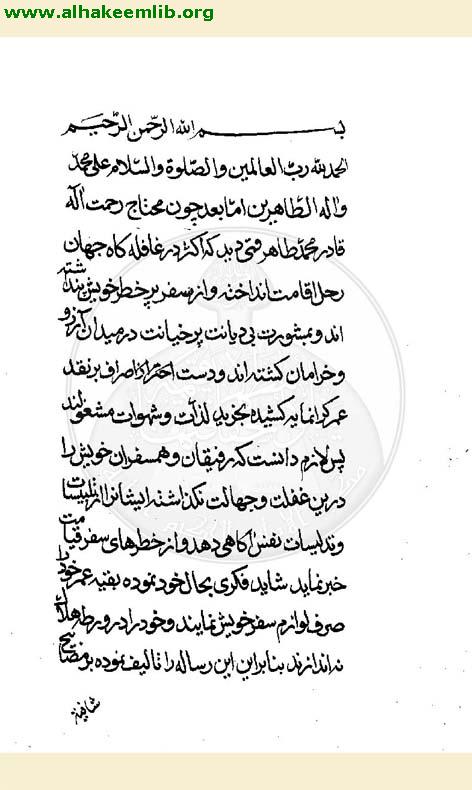 www.alhakeemlib.org
بسم الله الرحمن الرحیم
الحمد لله ربّ العالمین والصّلوة والسّلام علی محمد
واله الطّاهرین امّا بعد چون محتاج رحمت اله
قادر محمد طاهر قمی دید که اکثر در غافله کاه جهان
رحل اقامت انداخته و از سفر پر خطر خویش پند
اند و بمشورت بی دیانت پر خیانت در میدان آرزو
و خرامان کشته اند و دست از صراف بر نقد
عمر کرانمایه کشیده بخرید لذّات و شهوات مشغولند
پس لازم دانست که رفیقان و همسفران خویش را
درین غفلت و جهالت نکذاشته ایشانرا از تلبیسات
وتدلیسات نفس آکاهی دهد و از خطرهای سفر قیامت
خبر نماید شاید فکری بحال خود نموده بقیه عمر خود
صرف لوازم سفر خویش نمایند و خود را در ورطه هلاک
نه اندازند بنابراین این رساله را تالیف نموده بر نصایح
شافیة